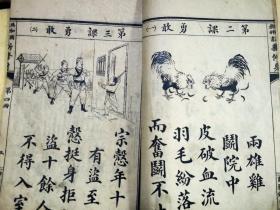 第二課 勇敢(一)
兩雄雞
鬭院中
皮破血流
羽毛紛落
而奮鬭不
第三課 勇敢(二)
宗愨年十
有盜至
愨挺身拒
盜十餘人
不得入室